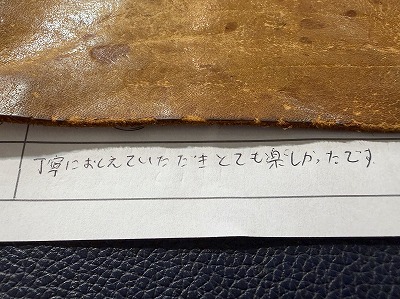 丁寧におしえていただきとても楽しかったです